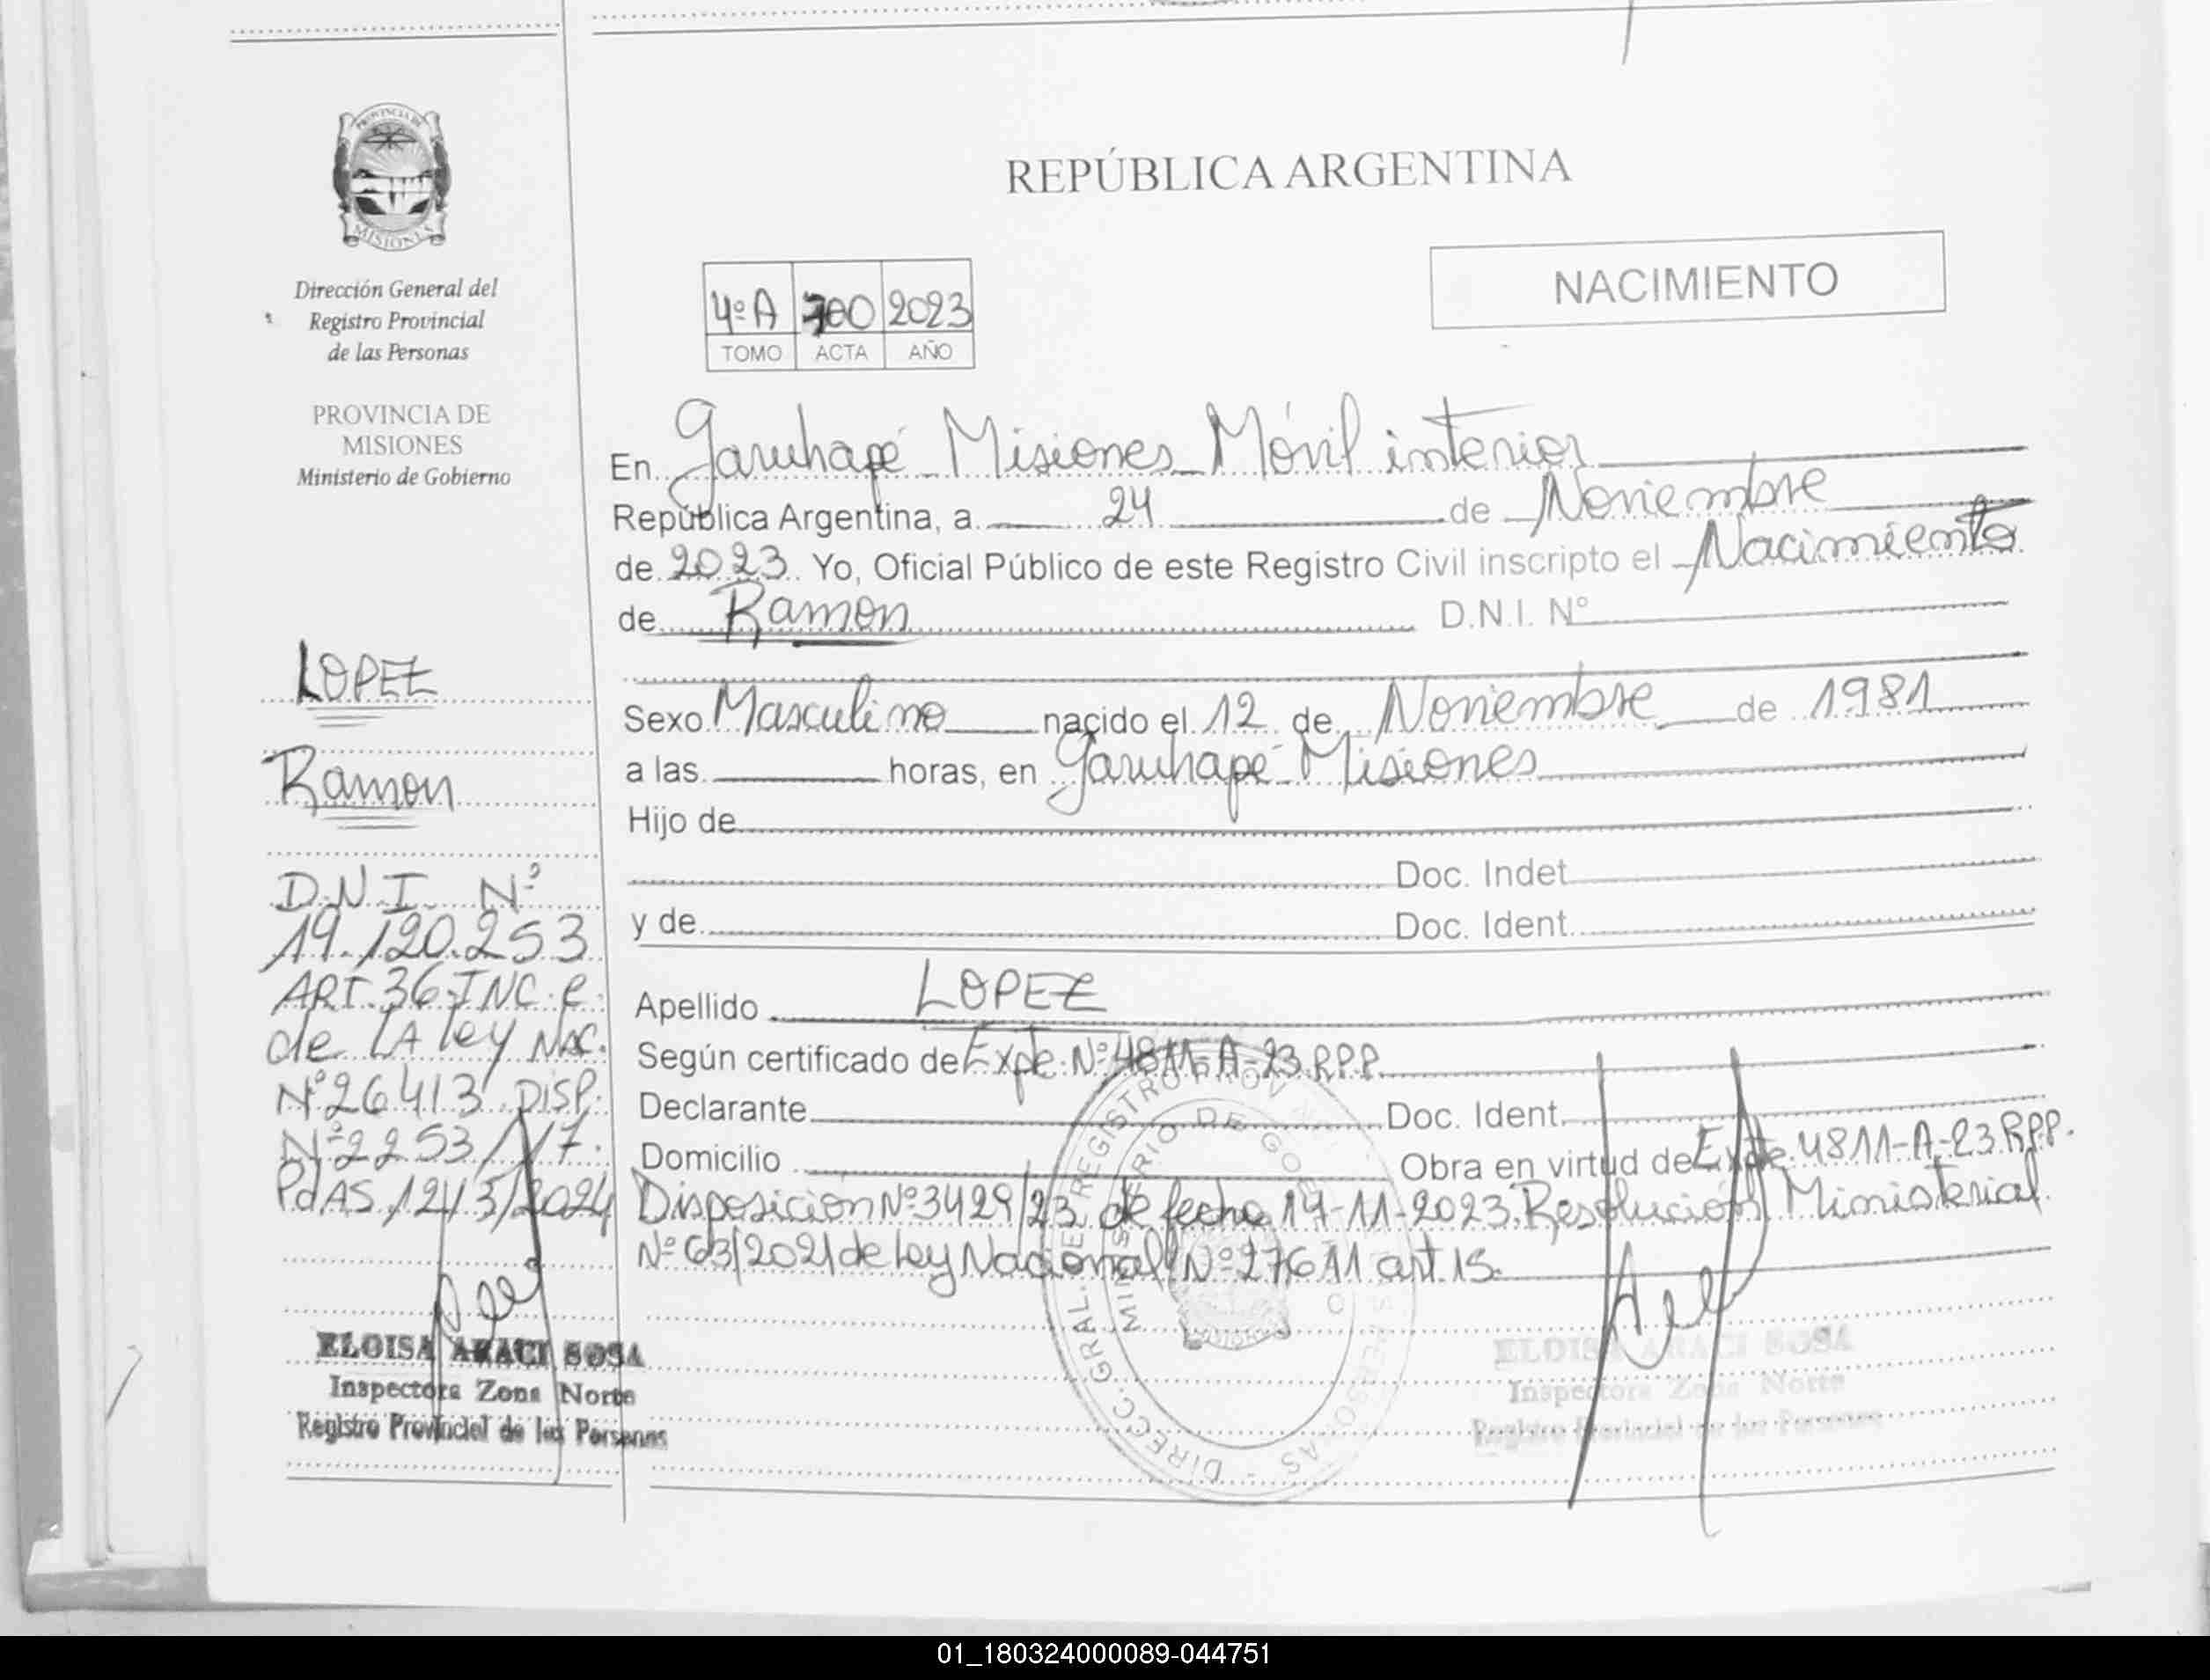 PROVINCIA DE
MISIONES
Dirección General del
Registro Provincial
de las Personas
PROVINCIA DE
MISIONES
Ministerio de Gobierno
LOPEZ
Ramon
D.N.I. Nº
19.120.253
ART. 36-INC. e
de LA ley NAC.
Nº26413 DISP.
Nº2253/17.
PdAS, 12/3/2024
ELOISA ARACI SOSA
Inspectora Zona Norte
Registro Provincial de las Personas
REPÚBLICA ARGENTINA
NACIMIENTO
4º A 700 2023
TOMO ACTA AÑO
En Garuhapé Misiones Móvil interior
República Argentina, a 24 de Noviembre
de 2023 Yo, Oficial Público de este Registro Civil inscripto el Nacimiento
de Ramon D.N.I. Nº
Sexo Masculino nacido el 12 de Noviembre de 1981
a las horas, en Garuhapé Misiones
Hijo de
Doc. Indet.
y de Doc. Ident.
Apellido LOPEZ
Según certificado de Expe. Nº 4811-A-23.R.P.P.
Declarante Doc. Ident.
Domicilio Obra en virtud de Expte. 4811-A-23 R.P.P.
Disposición Nº 3429/23 de fecha 17-11-2023. Resolución Ministerial
Nº 63/2021 de Ley Nacional Nº 27611 art 15.
ELOISA ARACI SOSA
Inspectora Zona Norte
Registro Provincial de las Personas
01_180324000089-044751